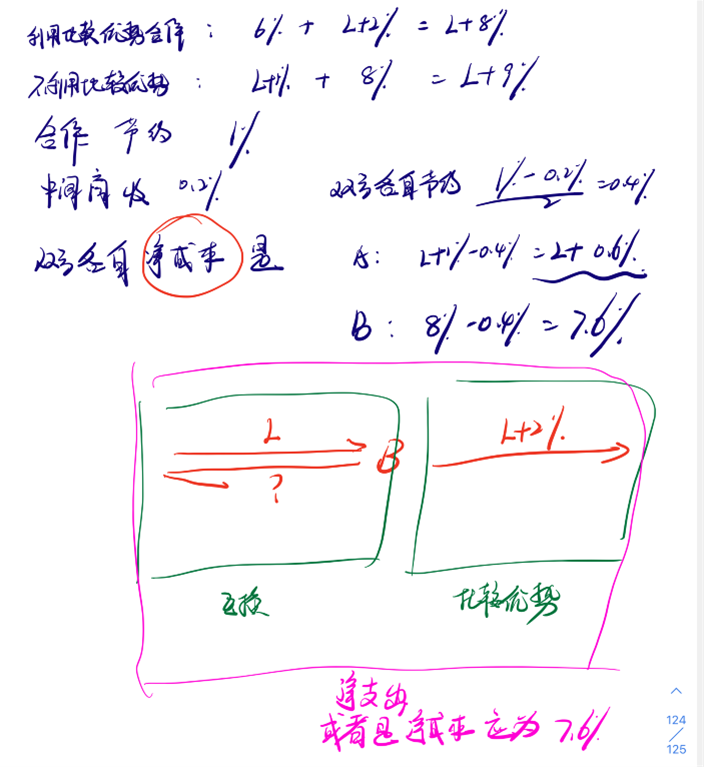 利用比较优势合作： 6% + L+2% = L+8%
不利用比较优势： L+1% + 8% = L+9%
合作 节约 1%
中间商收 0.2% 双方各自节约 1%-0.2%/2 =0.4%
双方各自净成本是 A: L+1%-0.4% = L+0.6%
B: 8%-0.4% = 7.6%
L
B
?
L+2%
互换 比较优势
净支出
或者是净成本 应为 7.6%
124
/
125